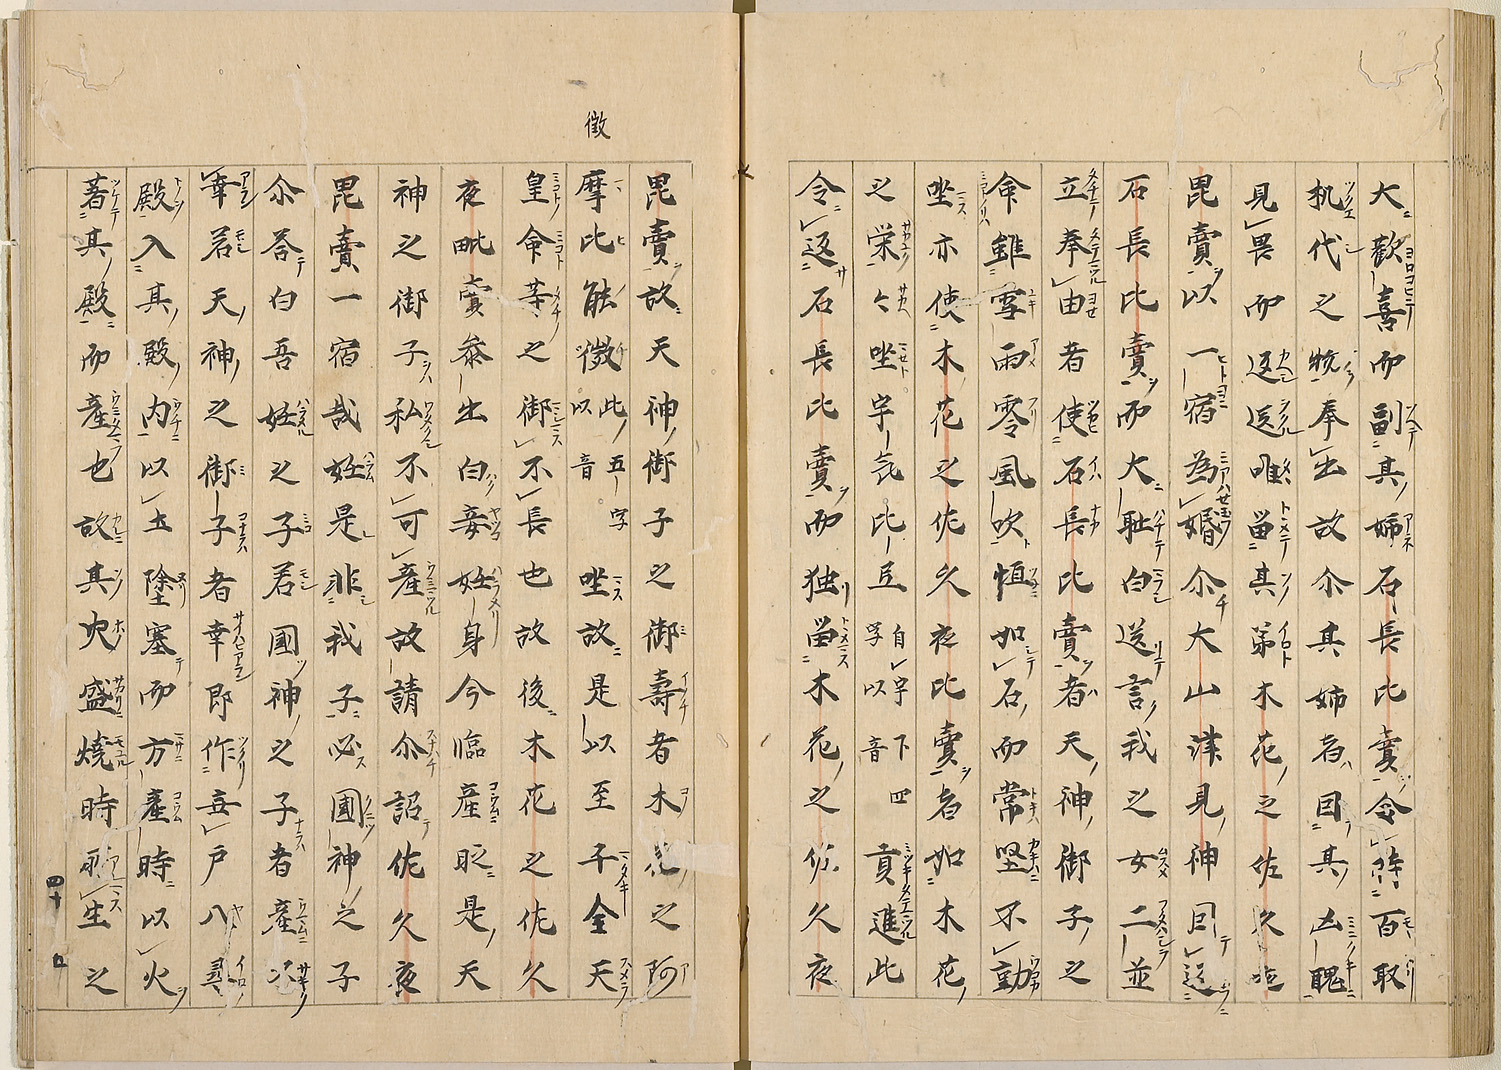 大歓喜而副其姉石長比賣令持百取
机代之物奉出故尓其姉者因其凶醜
見畏而返送唯畄其弟木花之佐久夜
毘賣以一宿為婚尓大山津見神因返
石長比賣而大恥白送言我之女二並
立奉由者使石長比賣者天神御子之
命雖雪雨零風吹恒如石而常堅不動
坐亦使木花之佐久夜比賣者如木花
之栄々坐宇気比弖自宇下四字以音貢進此
令返石長比賣而独畄木花之佐久夜
毘賣故天神御子之御壽者木花之阿
徴
摩比能微此五字以音坐故是以至于今天
皇命等之御不長也故後木花之佐久
夜毗賣参出白妾妊身今臨産時是天
神之御子私不可産故請尓詔佐久夜
毘賣一宿哉妊是非我子必國神之子
尓答白吾妊之子若國神之子者産不
幸若天神之御子者幸即作無戸八尋
殿入其殿内以土塗塞而方産時以火
著其殿而産也故其火盛燒時所生之
四十